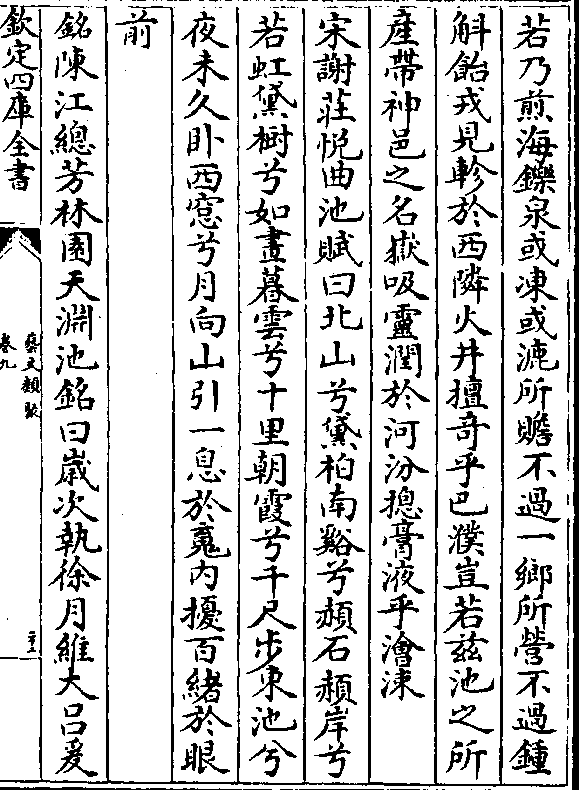 若乃煎海鑠泉或凍或漉所贍不過一鄉所營不過鍾
斛飴戎見軫於西隣火井擅奇乎巴濮豈若兹池之所
産帶神邑之名嶽吸靈潤於河汾揔膏液乎澮涑
宋謝莊悅曲池賦曰北山兮黛柏南谿兮赬石赬岸兮
若虹黛樹兮如畫暮雲兮十里朝霞兮千尺步東池兮
夜未久卧西窓兮月向山引一息於䰟内擾百緒於眼
前
銘陳江總芳林園天淵池銘曰嵗次執徐月維大吕爰
欽定四庫全書
藝文類聚
卷九